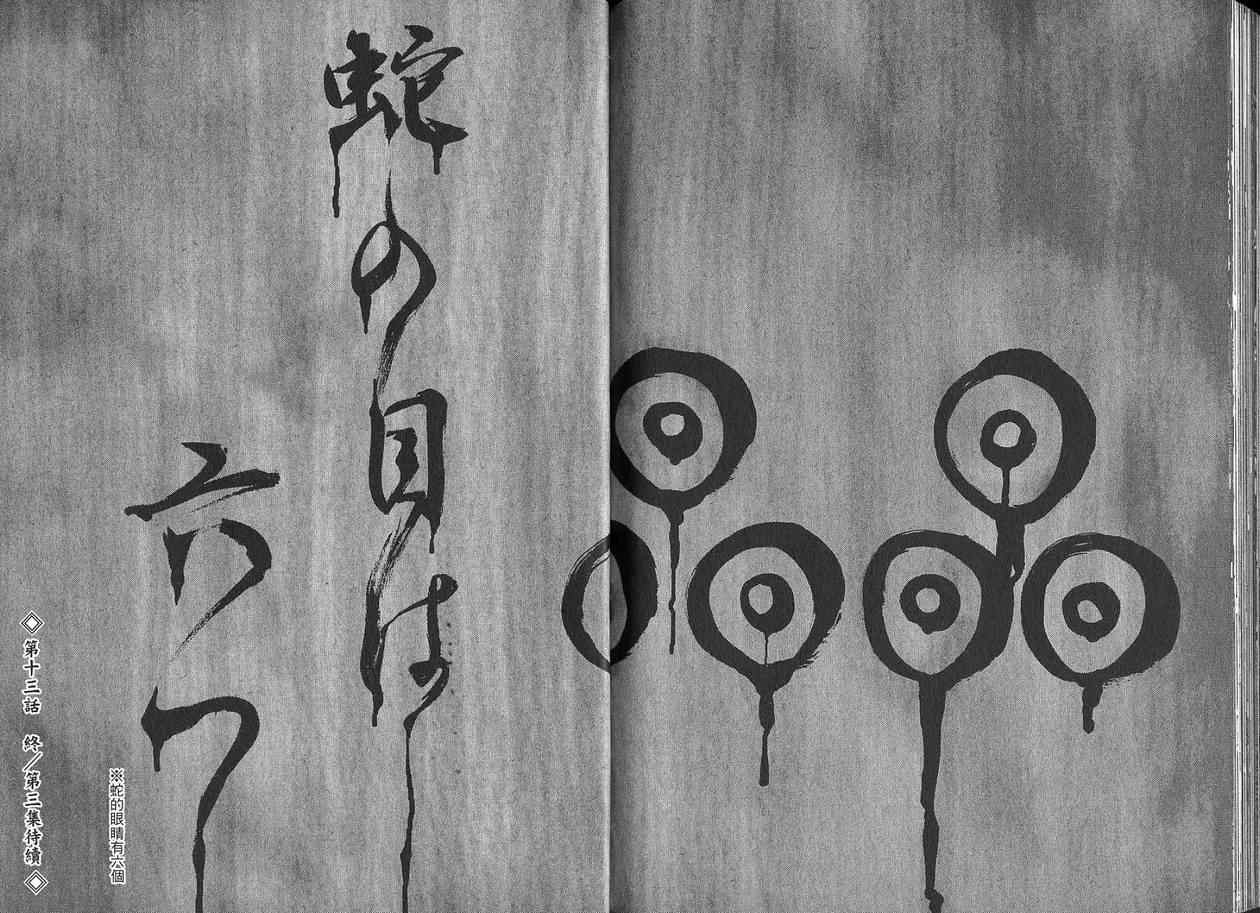 蛇の目は
六つ
※蛇的眼睛有六個
第十三話　終／第三集待續